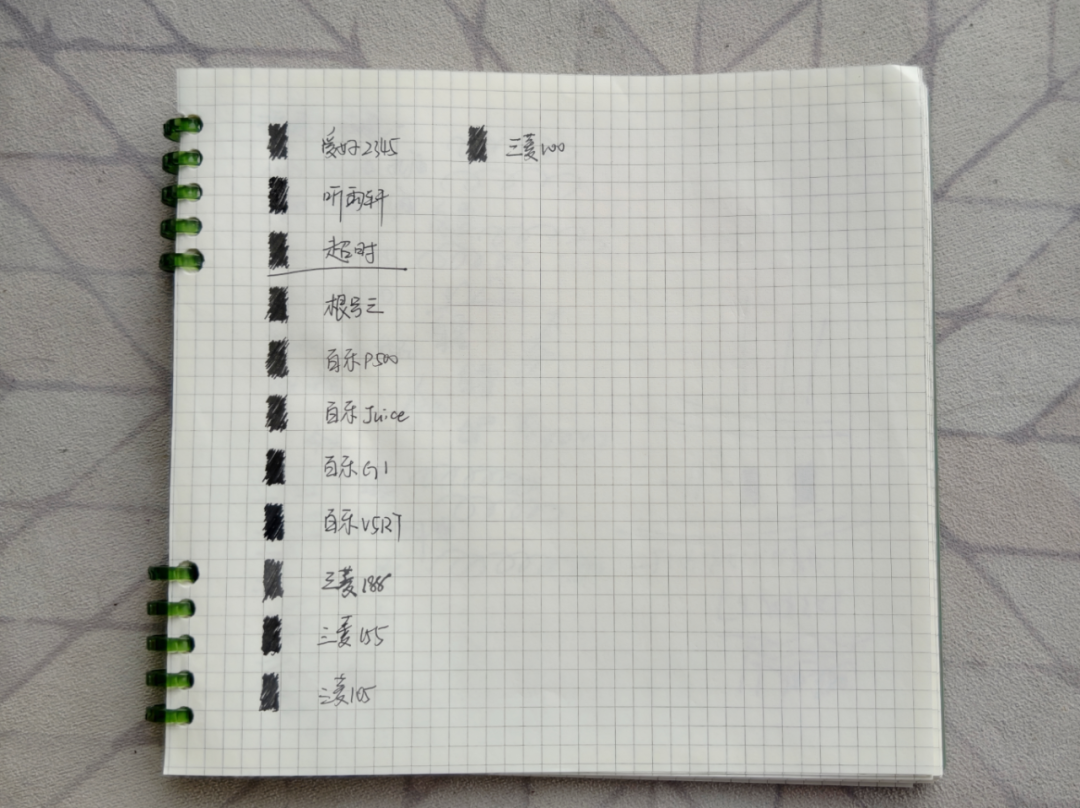 爱好2345
听雨轩
超时
根号三
百乐P500
百乐Juice
百乐G1
百乐V5RT
三菱188
三菱155
三菱105
三菱100